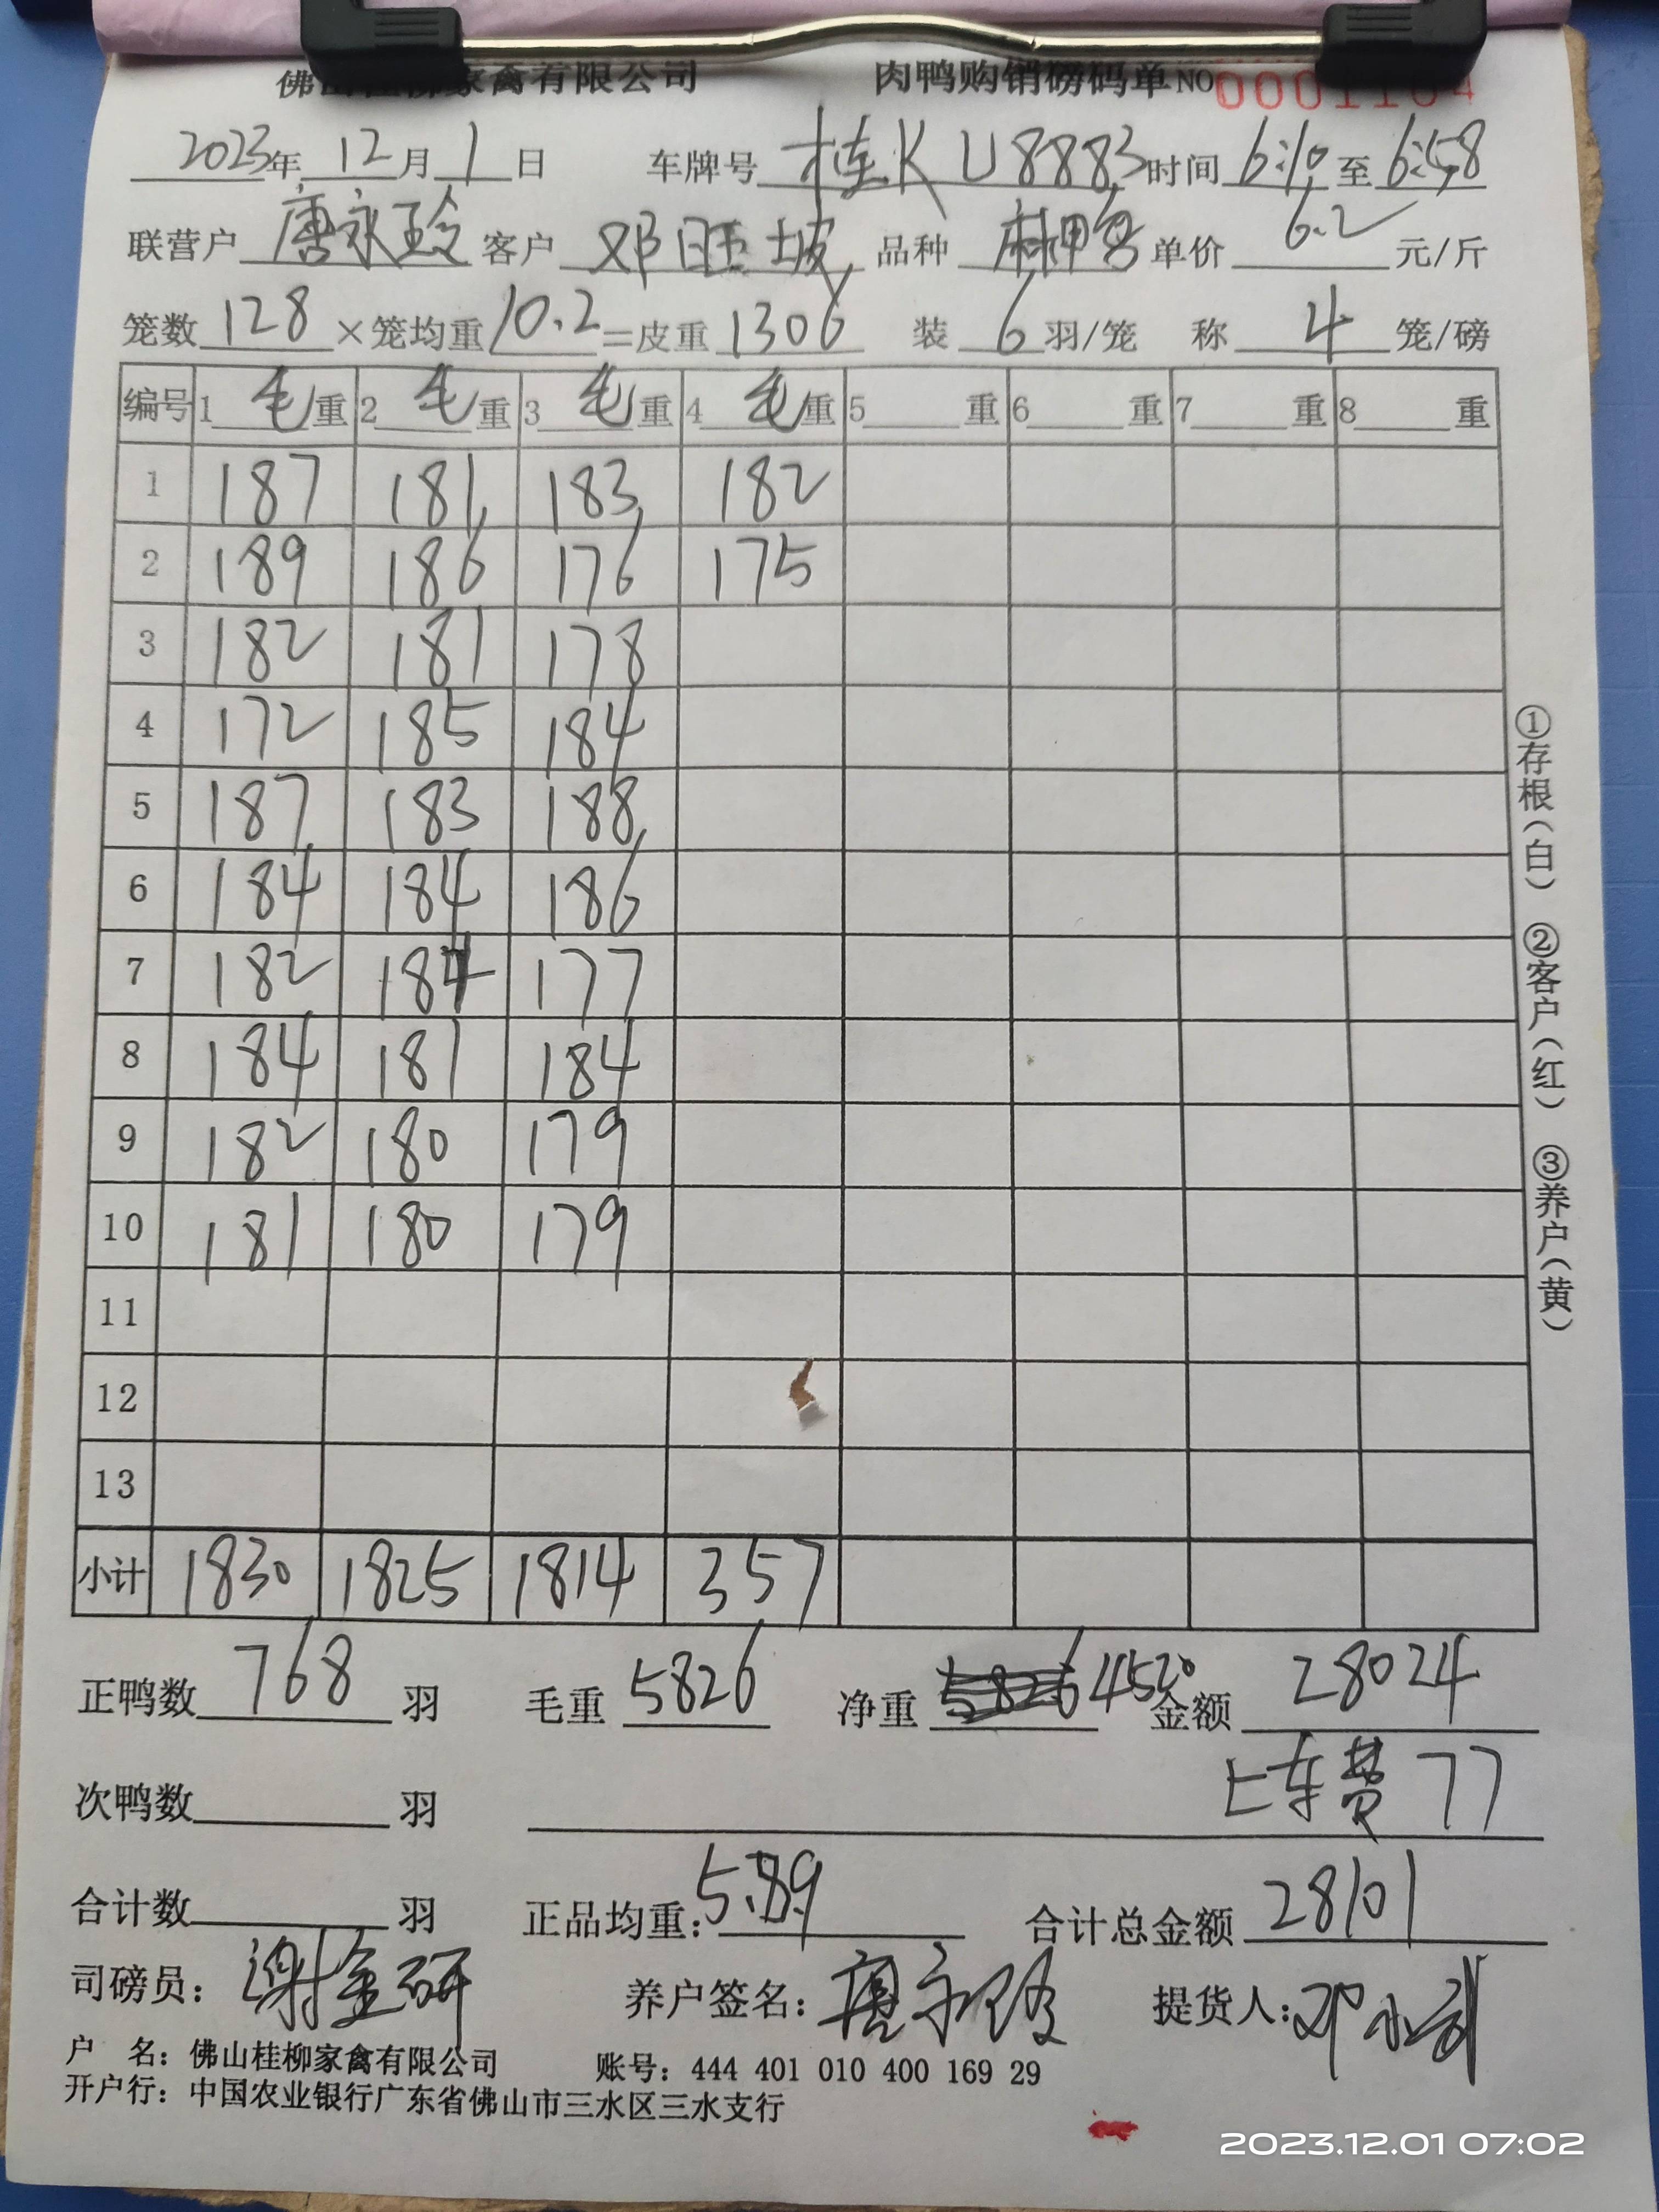 佛山桂柳家禽有限公司 肉鸭购销磅码单NO 0001164
2023年 12 月 1 日 车牌号 桂K U8883 时间 6:10 至 6:58
联营户 唐永玲 客户 邓旺坡 品种 麻鸭 单价 6.2 元/斤
笼数 128 ×笼均重 10.2 =皮重 1306 装 6 羽/笼 称 4 笼/磅
编号 1 毛 重 2 毛 重 3 毛 重 4 毛 重 5 重 6 重 7 重 8 重
1 187 181 183 182
2 189 186 176 175
3 182 181 178
4 172 185 184
5 187 183 188
6 184 184 186
7 182 184 177
8 184 181 184
9 182 180 179
10 181 180 179
11
12
13
小计 1830 1825 1814 357
正鸭数 768 羽 毛重 5826 净重 4520 金额 28024
次鸭数 羽 上车费 77
合计数 羽 正品均重: 5.89 合计总金额 28101
司磅员: 谢金研 养户签名: 唐永玲 提货人: 邓
户 名: 佛山桂柳家禽有限公司 账号: 444 401 010 400 169 29
开户行: 中国农业银行广东省佛山市三水区三水支行
①存根(白) ②客户(红) ③养户(黄)
2023.12.01 07:02